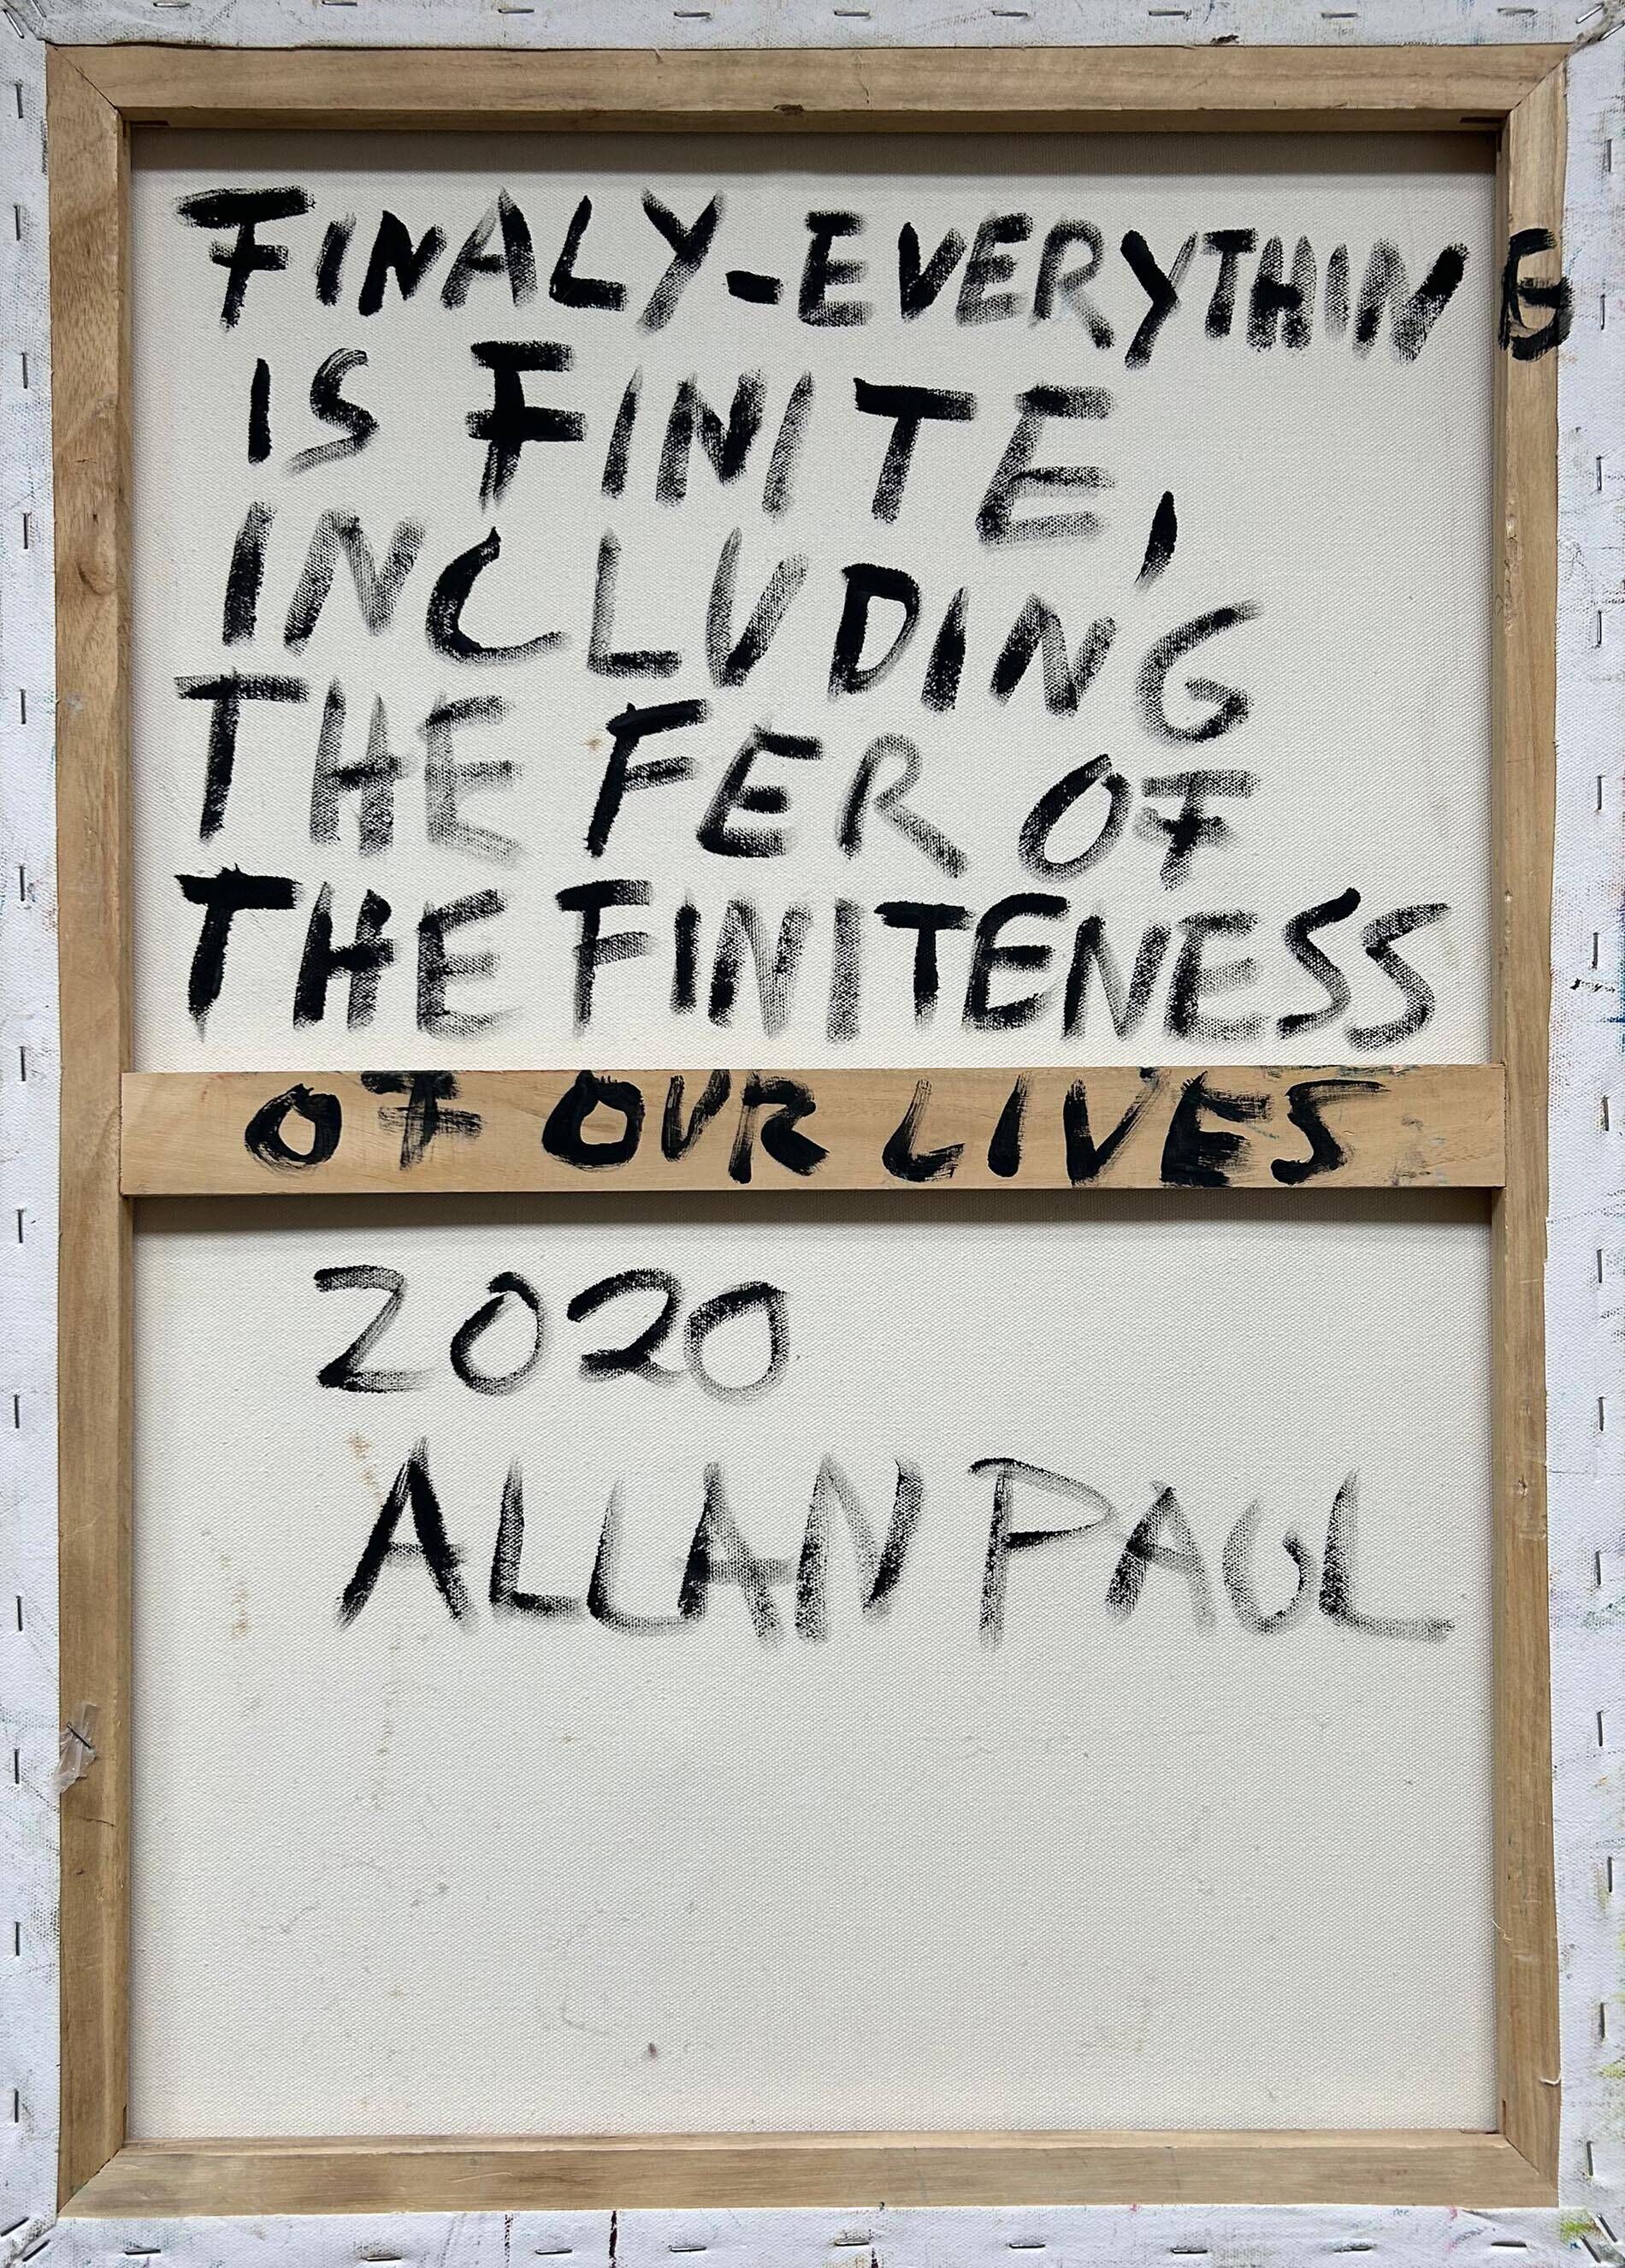 FINALY-EVERYTHING
IS FINITE,
INCLUDING
THE FER OF
THE FINITENESS
OF OUR LIVES
2020
ALLAN PAUL